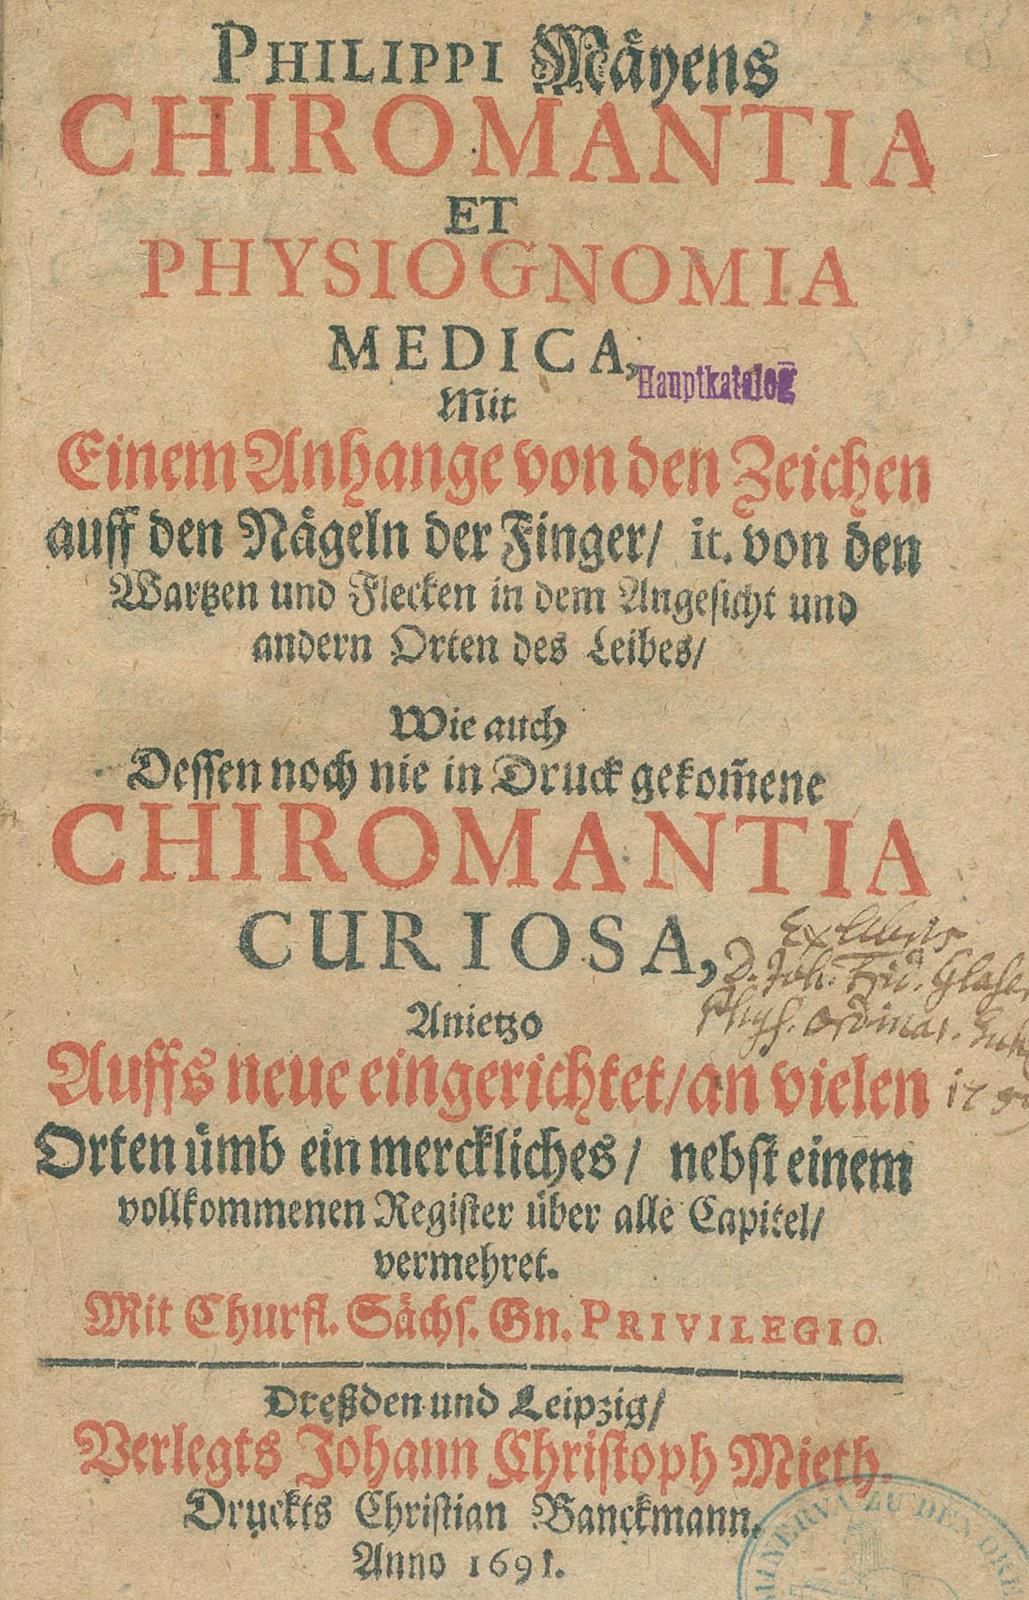 PHILIPPI Mäyens
CHIROMANTIA
ET
PHYSIOGNOMIA
MEDICA,
Hauptkatalog
Mit
Einem Anhange von den Zeichen
auff den Nägeln der Finger/ it. von den
Wartzen und Flecken in dem Angesicht und
andern Orten des Leibes/
Wie auch
Dessen noch nie in Druck gekom̃ene
CHIROMANTIA
CURIOSA,
Ex Libris
D. Joh. Frid. Glaser
Phys. ordinar.
Anietzo
Auffs neue eingerichtet/ an vielen
Orten ümb ein merckliches/ nebst einem
vollkommenen Register über alle Capitel/
vermehret.
Mit Churfl. Sächs. Gn. PRIVILEGIO.
Dreßden und Leipzig/
Verlegts Johann Christoph Mieth.
Druckts Christian Banckmann.
Anno 1691.
MINERVA ZU DEN DRE